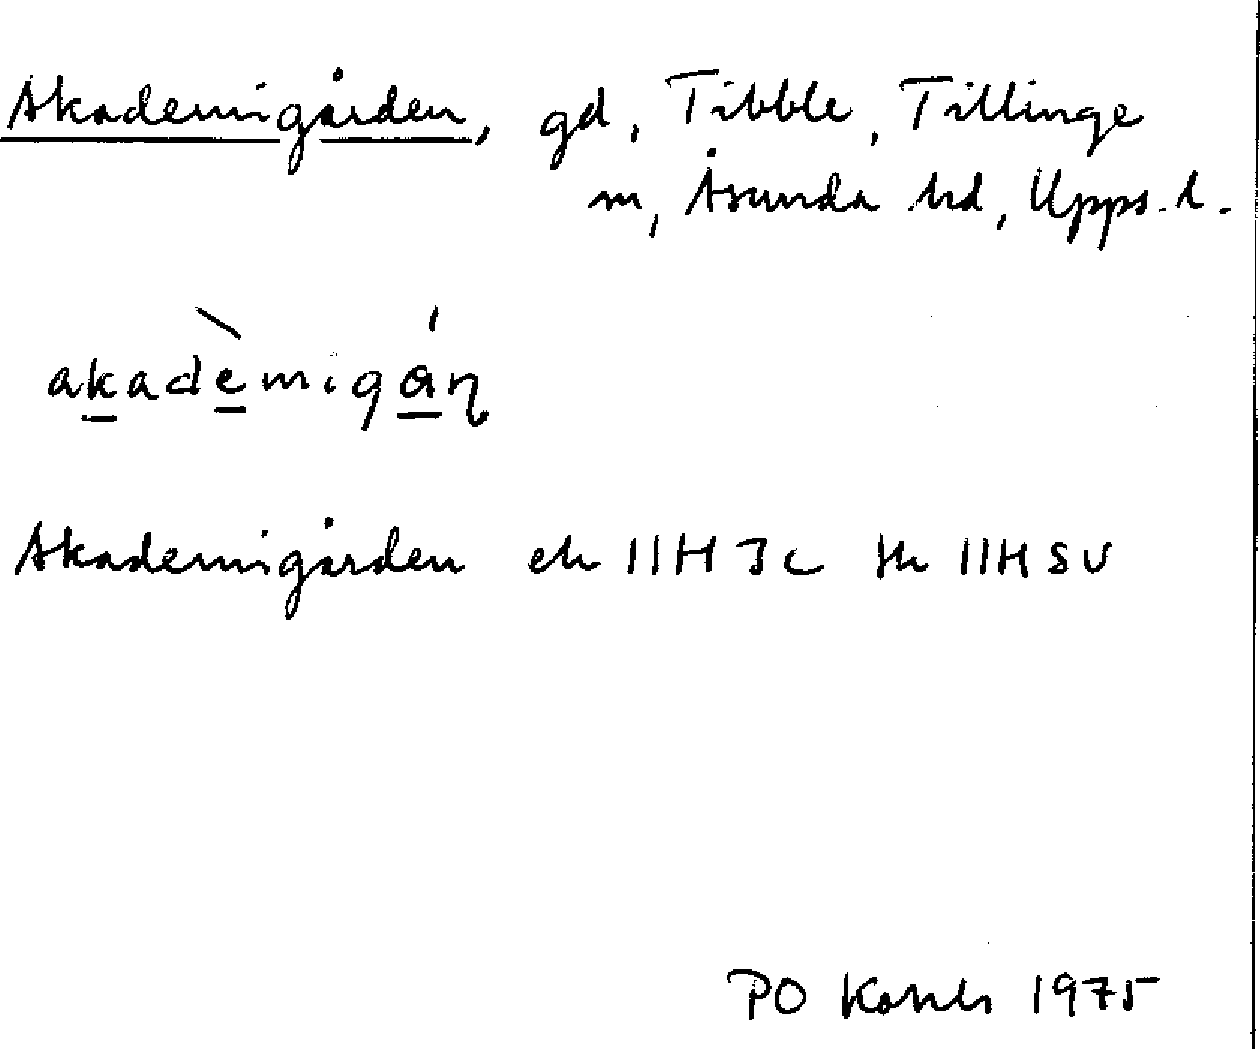 Akademigården, gd, Tibble, Tillinge
sn, Åsunda hd, Upps. l.
akadèmigán
Akademigården ek 11H 3c 11H SV
PO 1975